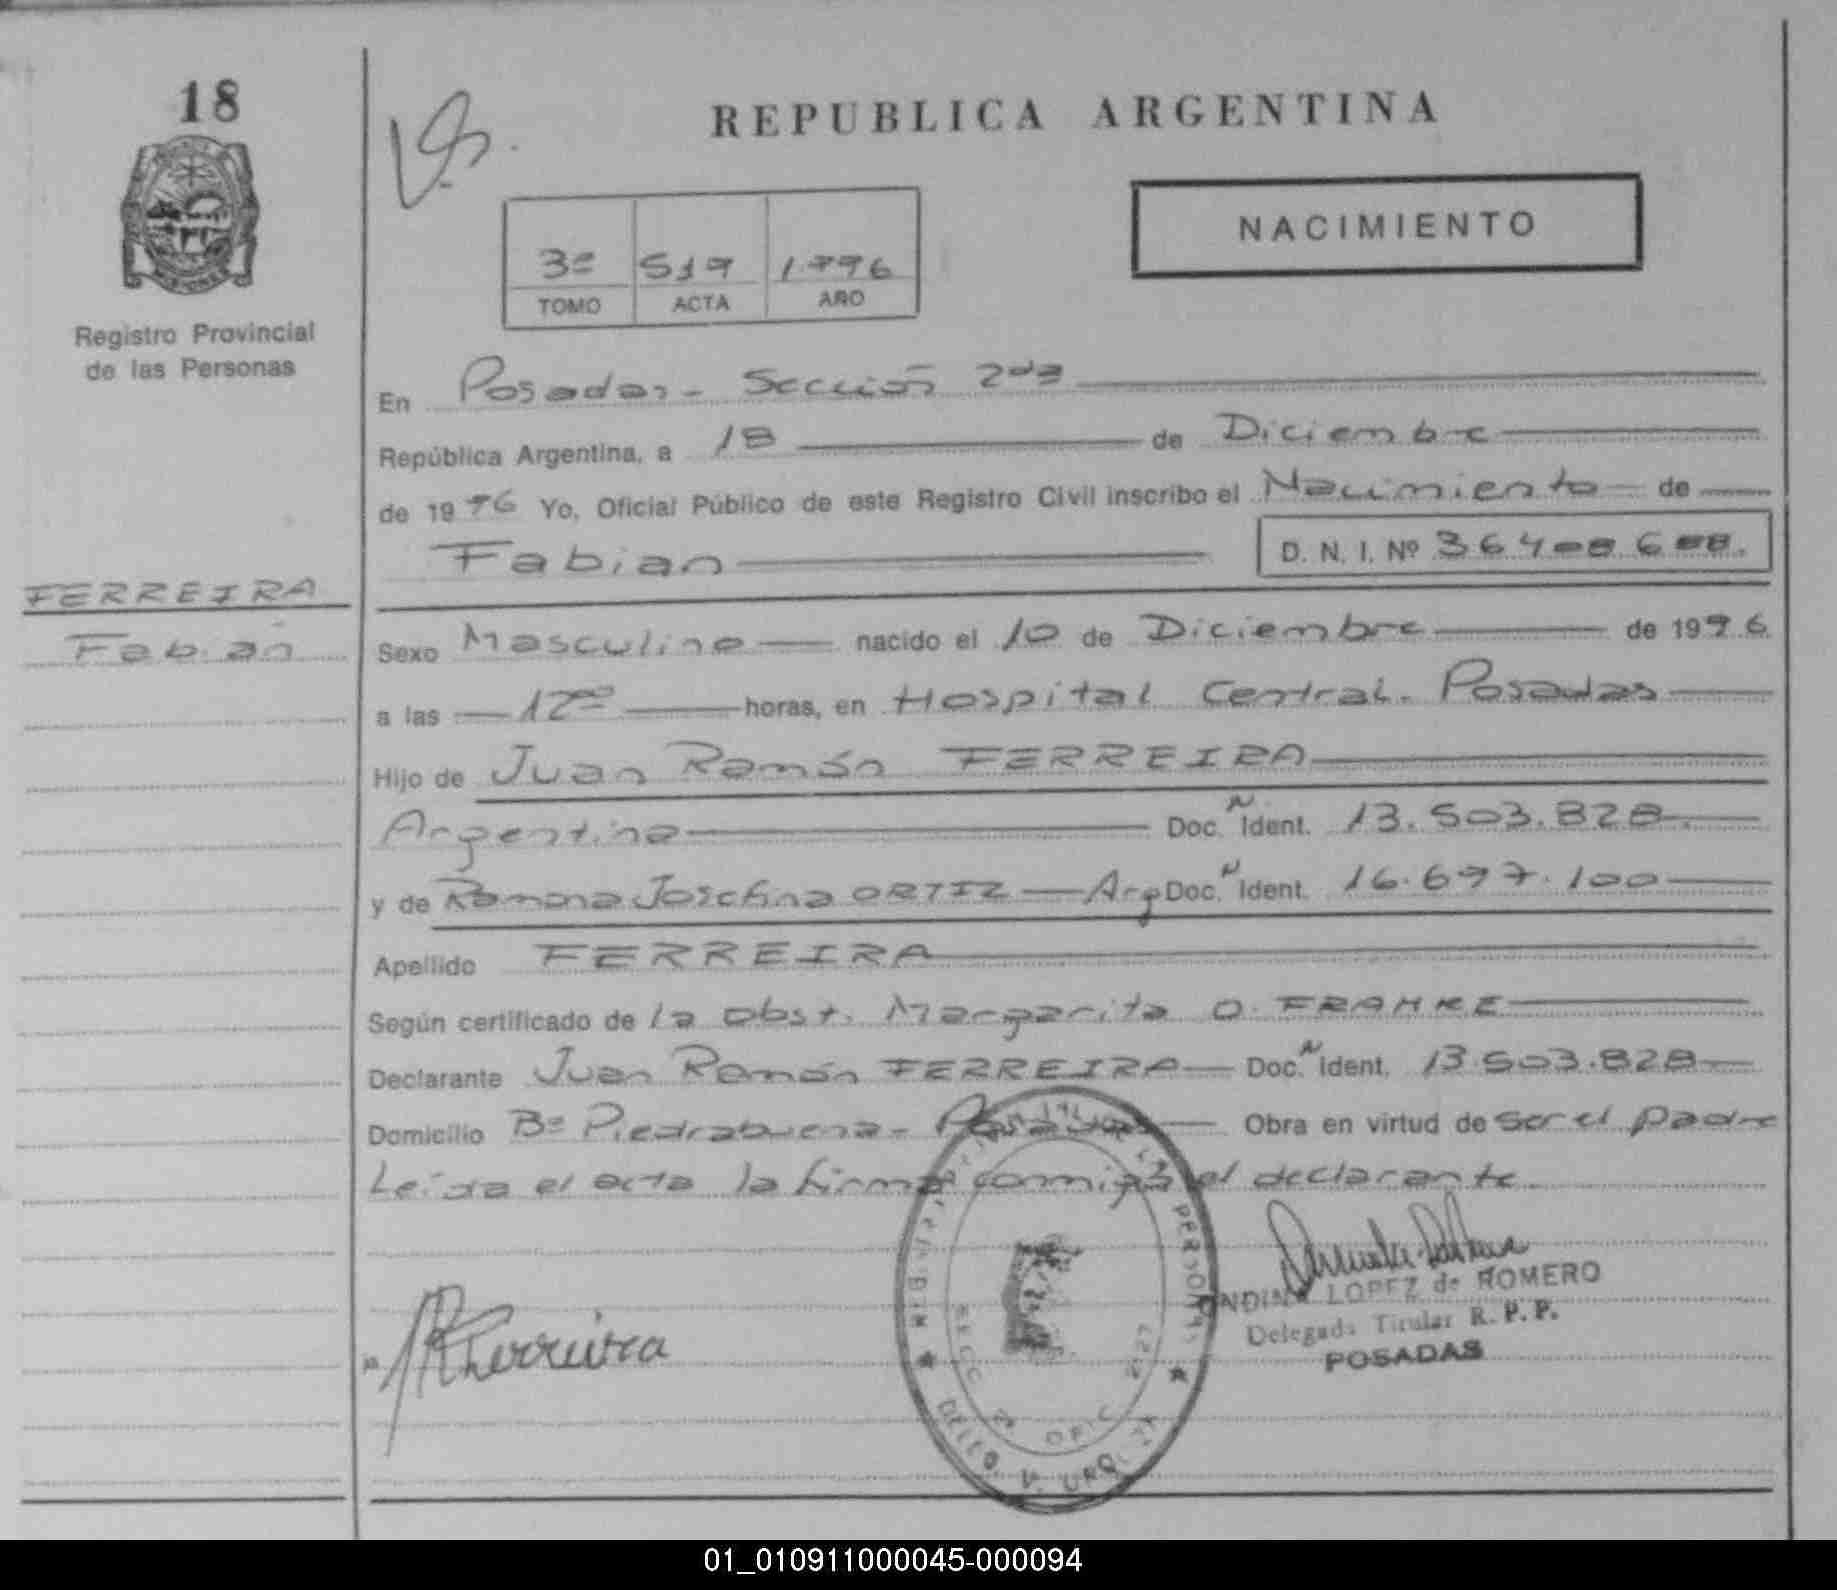 18
REPUBLICA ARGENTINA
NACIMIENTO
3º 519 1.996
TOMO ACTA AÑO
Registro Provincial
de las Personas
En Posadas - Sección 2da
República Argentina, a 18 de Diciembre
de 1996 Yo, Oficial Público de este Registro Civil inscribo el Nacimiento de
Fabian D. N. I. Nº
FERREIRA
Fabian
Sexo Masculino nacido el 10 de Diciembre de 1996
a las horas, en Hospital Central. Posadas
Hijo de Juan Ramón FERREIRA
Argentina Doc. N Ident. 13.503.828.
y de Ramona Josefina ORTIZ Arg Doc. N Ident. 16.697.100
Apellido FERREIRA
Según certificado de la Obst. Margarita O. FRAHKE
Declarante Juan Ramón FERREIRA Doc. N Ident. 13.503.828
Domicilio Bº Piedrabuena - Posadas Obra en virtud de ser el padre
Leída el acta la firma conmigo el declarante
LOPEZ de ROMERO
Delegada Titular R. P. P.
POSADAS
Ferreira
01_010911000045-000094